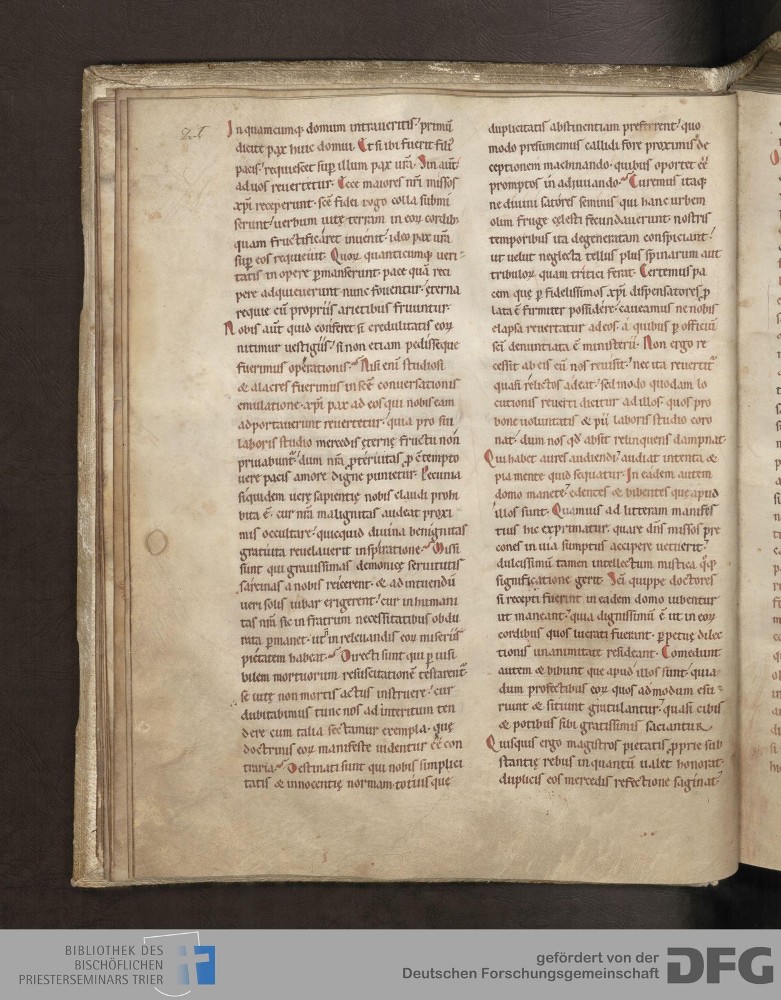 In quamcumq; domum intraueritis. primũ
dicite pax huic domui. Et si ibi fuerit fili᷒
pacis. requiescet sup illum pax ura. Sin aut
ad uos reuertetur. Ecce maiores nri missos
xpi receperunt. sce fidei iugo colla submi
serunt. uerbum uitę terram in eoꝝ cordib;
quam fructificaret inuenit. ideo pax ura
sup eos requieuit. Quoꝝ quanticumq; ueri
tatis in opere pmanserunt. pace quã reci
pere adquieuerunt nunc fouentur. ęterna
requie cũ propriis arietibus fruuntur.
Nobis aut quid confert si credulitatis eoꝝ
nitimur uestigiis. si non etiam pedisseque
fuerimus operationis. Nisi eni studiosi
& alacres fuerimus in scẽ conuersationis
emulatione. xpi pax ad eos qui nobis eam
adportauerunt reuertetur. quia pro sui
laboris studio mercedis ęternę fructu non
priuabunt. dum nra pteruitas p cẽtempto
uere pacis amore digne punietur. Pecunia
siquidem uerę sapientię nobis claudi prohi
bita ẽ. cur nra malignitas audeat proxi
mis occultare. quicquid diuina benignitas
gratuita reuelauerit inspiratione. Missi
sunt qui grauissimas demonicę seruitutis
sarcinas a nobis reicerent. & ad intuendũ
ueri solis iubar erigerent. cur inhumani
tas nra sic in fratrum necessitatibus obdu
rata pmanet. ut in releuandis eoꝝ miseriis
pietatem habeat. Directi sunt qui p uisi
bilem mortuorum resuscitationẽ testarent
se uitę non mortis actus instruere. cur
dubitabimus tunc nos ad interitum ten
dere cum talia sectamur exempla. quę
doctrinis eoꝝ manifeste uidentur ẽẽ con
traria. Destinati sunt qui nobis simplici
tatis & innocentię normam. totius que
duplicitatis abstinentiam preferrent. quo
modo presumemus callidi fore proximis de
ceptionem machinando. quibus oportet ẽẽ
promptos in adiuuando. Curemus itaq;
ne diuini satores seminis qui hanc urbem
olim fruge cęlesti fecundauerunt. nostris
temporibus ita degeneratam conspiciant.
ut uelut neglecta tellus plus spinarum aut
tribuloꝝ quam tritici ferat. Certemus pa
cem quę p fidelissimos xpi dispensatores p
lata ẽ firmiter possidere. caueamus ne nobis
elapsa reuertatur ad eos. a quibus p officiũ
sci denuntiata ẽ ministerii. Non ergo re
cessit ab eis cũ nos reuisit. nec ita reuertit
quasi relictos adeat. sed modo quodam lo
cutionis reuerti dicitur ad illos. quos pro
bone uoluntatis & pii laboris studio coro
nat. dum nos qd absit relinquens dampnat.
Qui habet aures audiendi. audiat intenta &
pia mente quid sequatur. In eadem autem
domo manete. edentes & bibentes que apud
illos sunt. Quamuis ad litteram manifes
tius hic exprimatur. quare dns missos pre
cones in uia sumptus accipere uetuerit.
dulcissimũ tamen intellectum mistica qq;
significatione gerit. Sci quippe doctores
si recepti fuerint in eadem domo iubentur
ut maneant. quia dignissimũ ẽ ut in eoꝝ
cordibus quos lucrati fuerant. ppetuę dilec
tionis unanimitate resideant. Comedunt
autem & bibunt que apud illos sunt. quia
dum profectibus eoꝝ quos admodum esu
riunt & sitiunt gratulantur. quasi cibis
& potibus sibi gratissimis saciantur
Quisquis ergo magistros pietatis pprie sub
stantię rebus in quantũ ualet honorat.
duplicis eos mercedis refectione saginat.
BIBLIOTHEK DES
BISCHÖFLICHEN
PRIESTERSEMINARS TRIER
gefördert von der
Deutschen Forschungsgemeinschaft
DFG